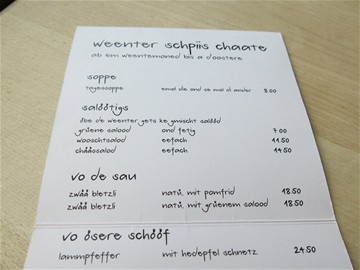 weenter schpiis chaate
ab em weentermaned bis a doostere
soppe
tagessoppe emal die ond se mal di ander 8.00
salöötigs
öbe de weenter gets kemischt salööd
grüene salood ond fetig 7.00
wooschtsalood eefach 11.50
chääsalood eefach 14.50
vo de sau
zwää bletzli natü, mit pomfrid 18.50
zwää bletzli natü, mit grüenem salood 18.50
vo ösere schööf
lammpfeffer mit hedepfel schnetz 24.50